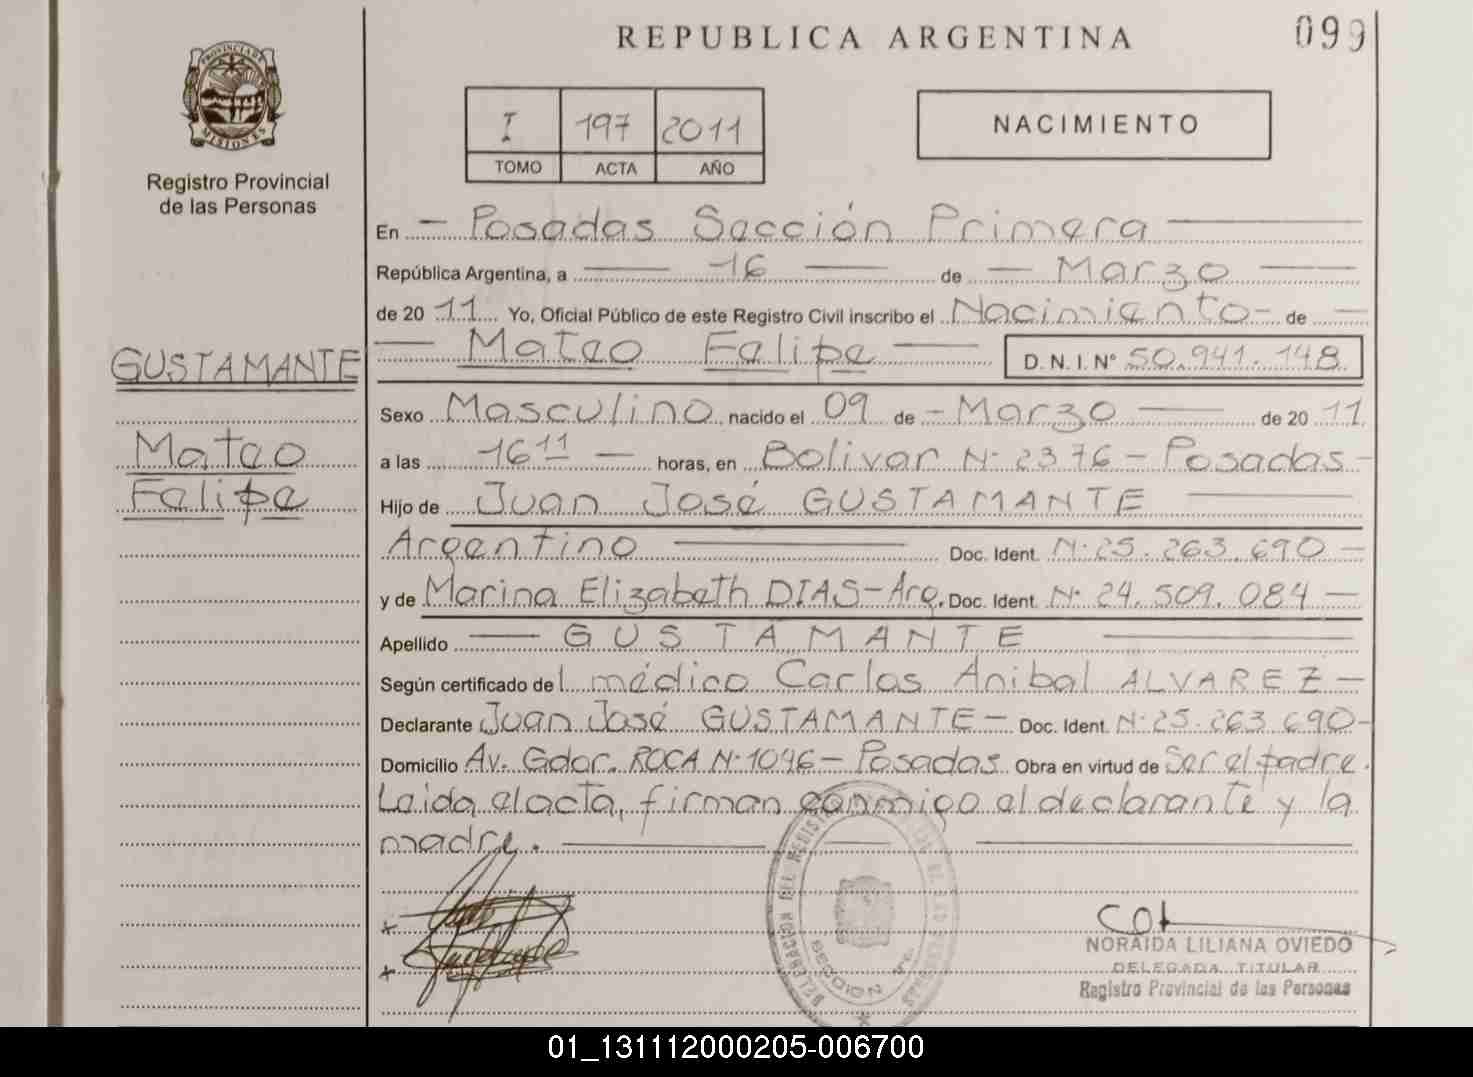 REPUBLICA ARGENTINA
099
PROVINCIA DE MISIONES
Registro Provincial
de las Personas
I 197 2011
TOMO ACTA AÑO
NACIMIENTO
En - Posadas Sección Primera
República Argentina, a 16 de - Marzo
de 2011 Yo, Oficial Público de este Registro Civil inscribo el Nacimiento - de -
Mateo Felipe D.N.I. N° 50.941.148
GUSTAMANTE
Mateo
Felipe
Sexo Masculino nacido el 09 de - Marzo de 2011
a las 16 11 - horas, en Bolivar N· 2376 - Posadas -
Hijo de Juan José GUSTAMANTE
Argentino Doc. Ident. N· 25.263.690 -
y de Marina Elizabeth DIAS - Arg. Doc. Ident. N· 24.509.084 -
Apellido GUSTAMANTE
Según certificado del médico Carlos Anibal ALVAREZ -
Declarante Juan José GUSTAMANTE - Doc. Ident. N· 25.263.690 -
Domicilio Av. Gdor. ROCA N· 1046 - Posadas Obra en virtud de Ser el padre.
Leida el acta, firman conmigo el declarante y la
madre.
SECCION 1ra.
NORAIDA LILIANA OVIEDO
DELEGADA TITULAR
Registro Provincial de las Personas
01_131112000205-006700